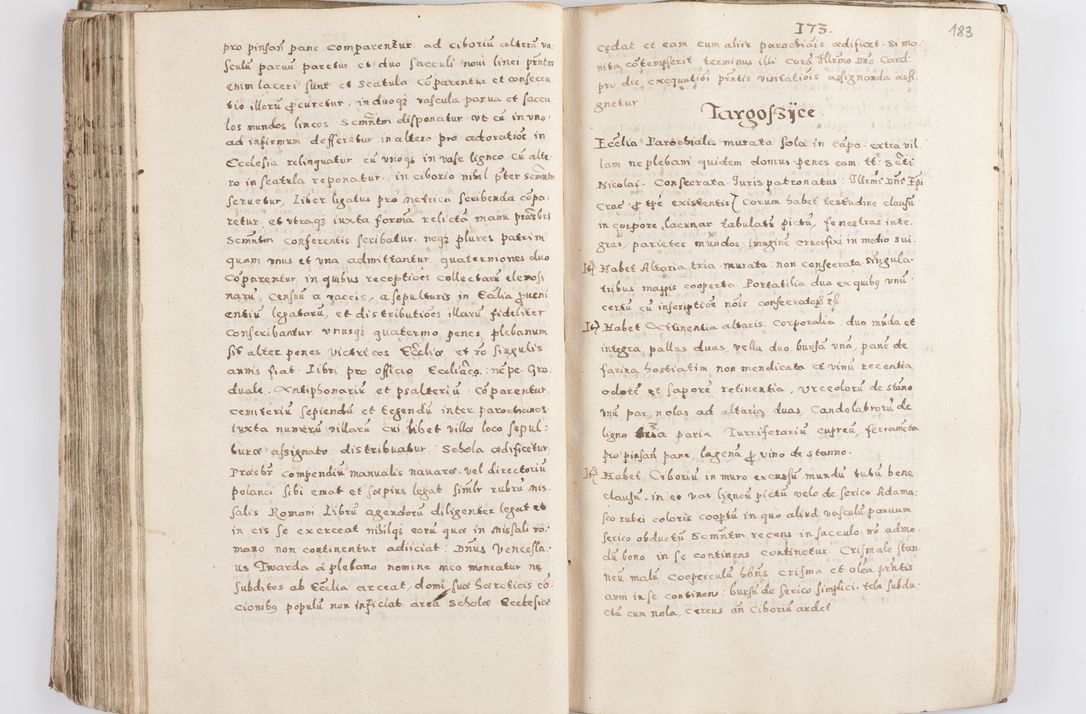 pro pinsan̄ pane comparentur ad ciboriū alterū va
sculū paruū paretur et duo sacculi noui linei prn̄tes
enim laceri sunt et scatula cōparentur et consecra
tio illorū ꝓcuretur in duoqꝫ vascula parua et saccu
los mundos lineos Scm̄ntm disponatur ut cū in vno
ad infirmum defferetur in altero pro adoratiōe in
Ecclesia relinquatur cū vnoqꝫ in vase ligneo cū alte
ro in scatula reponatur in ciborio nihil p̄ter scm̄ntm
seruetur, Liber ligatus pro metrica scribenda cōpa
retur et utraqꝫ iuxta formā relictā manu praesbri
Scm̄ntm conferentis scribatur neqꝫ plures patrim
quam vnus et vna admittantur, quaterniones duo
cōparentur in quibus receptiōes collectarū elemosi
narū censuū a vaccis, a sepulturis in Ecc̄lia ꝓueni
entiū legatorū, et distributiōes illarū fideliter
conscribantur vnusqꝫ quaterno penes plebanum
sit alter penes victricos Ecc̄liae et rō singulis
annis fiat Libri pro officio Eccliāco: nēpe Gra
duale Antiphonariū et psalteriū cōparentur
cemiteriū sepiendū et tegendū inter parochianos
iuxta numerū villarū cui libet villae loco sepul:
turae assignato distribuatur Schola aedificetur
Praesbr compendiū manualis nauarae vel directoriū
polanci sibi emat et saepius legat simlr rubrū mis
salis Romani Librū agendorū diligenter legat et
in eis se exerceat nihilqꝫ eorū quae in missali ro:
mano non continentur adiiciat: Dn̄us Vencesla
us Twarda a plebano nomine meo moneatur ne
subditos ab Ecc̄lia arceat, domi suae haereticis cō
cionibꝫ populū non inficiat area scholae Ecclesiae
173.
183
cędat et eam cum aliis parochiāis aedificet. Si mo
nita cōtempserit terminus illi corā Illrmo Dn̄o Card
pro die exequutiōi prn̄tis visitatiōis assignanda assi
gnetur
Targoszÿce
Ecc̄lia Parochialis murata sola in cāpo extra vil
lam ne plebani quidem domus penes eam tt Sc̄ti
Nicolai. Consecrata Iuris patronatus Illrmi Dn̄i Ep̄i
Crac ꝓ tpe existentis Corum habet testudine clausū
in corpore lacunar tabulatū pictū, fenestras inte
gras, parietes mundos imaginē crucifixi in medio sui.
Itē Habet Altaria tria murata non consecrata singula
tribus mappis cooperta Portatilia duo ex quibꝫ vnū
certū cū inscriptiōe nōis consecratoris
Itē Habet Attinentia altaris, Corporalia duo mūda et
integra, pallas duas, vella duo, bursā vnā, pane de
farina hostiatim non mendicata et vinū recentia
odorē et saporē retinentia, vrceolorū de stāno
vnū par, nolas ad altaria duas, Candelabrorū de
ligno tria paria Turriferariū cupreū, ferramēta
pro pinsan̄ pane, lagenā ꝓ vino de stanno.
Itē Habet, Ciboriū in muro excursū mundū tutū bene
clausū, in eo vas ligneū pictū velo de serico Adama:
sco rubei coloris coopertū in quo aliud vasculū paruum
serico obductū Scm̄ntm recens in sacculo nō admo
dū bono in se continens continetur Crismale stan
neū malū Cooperculū hn̄s crisma et olea prn̄tis
anni in se continen: bursā de serico simplici, tela subdu
ctā cum nola, cereus an̄ Ciboriū ardet